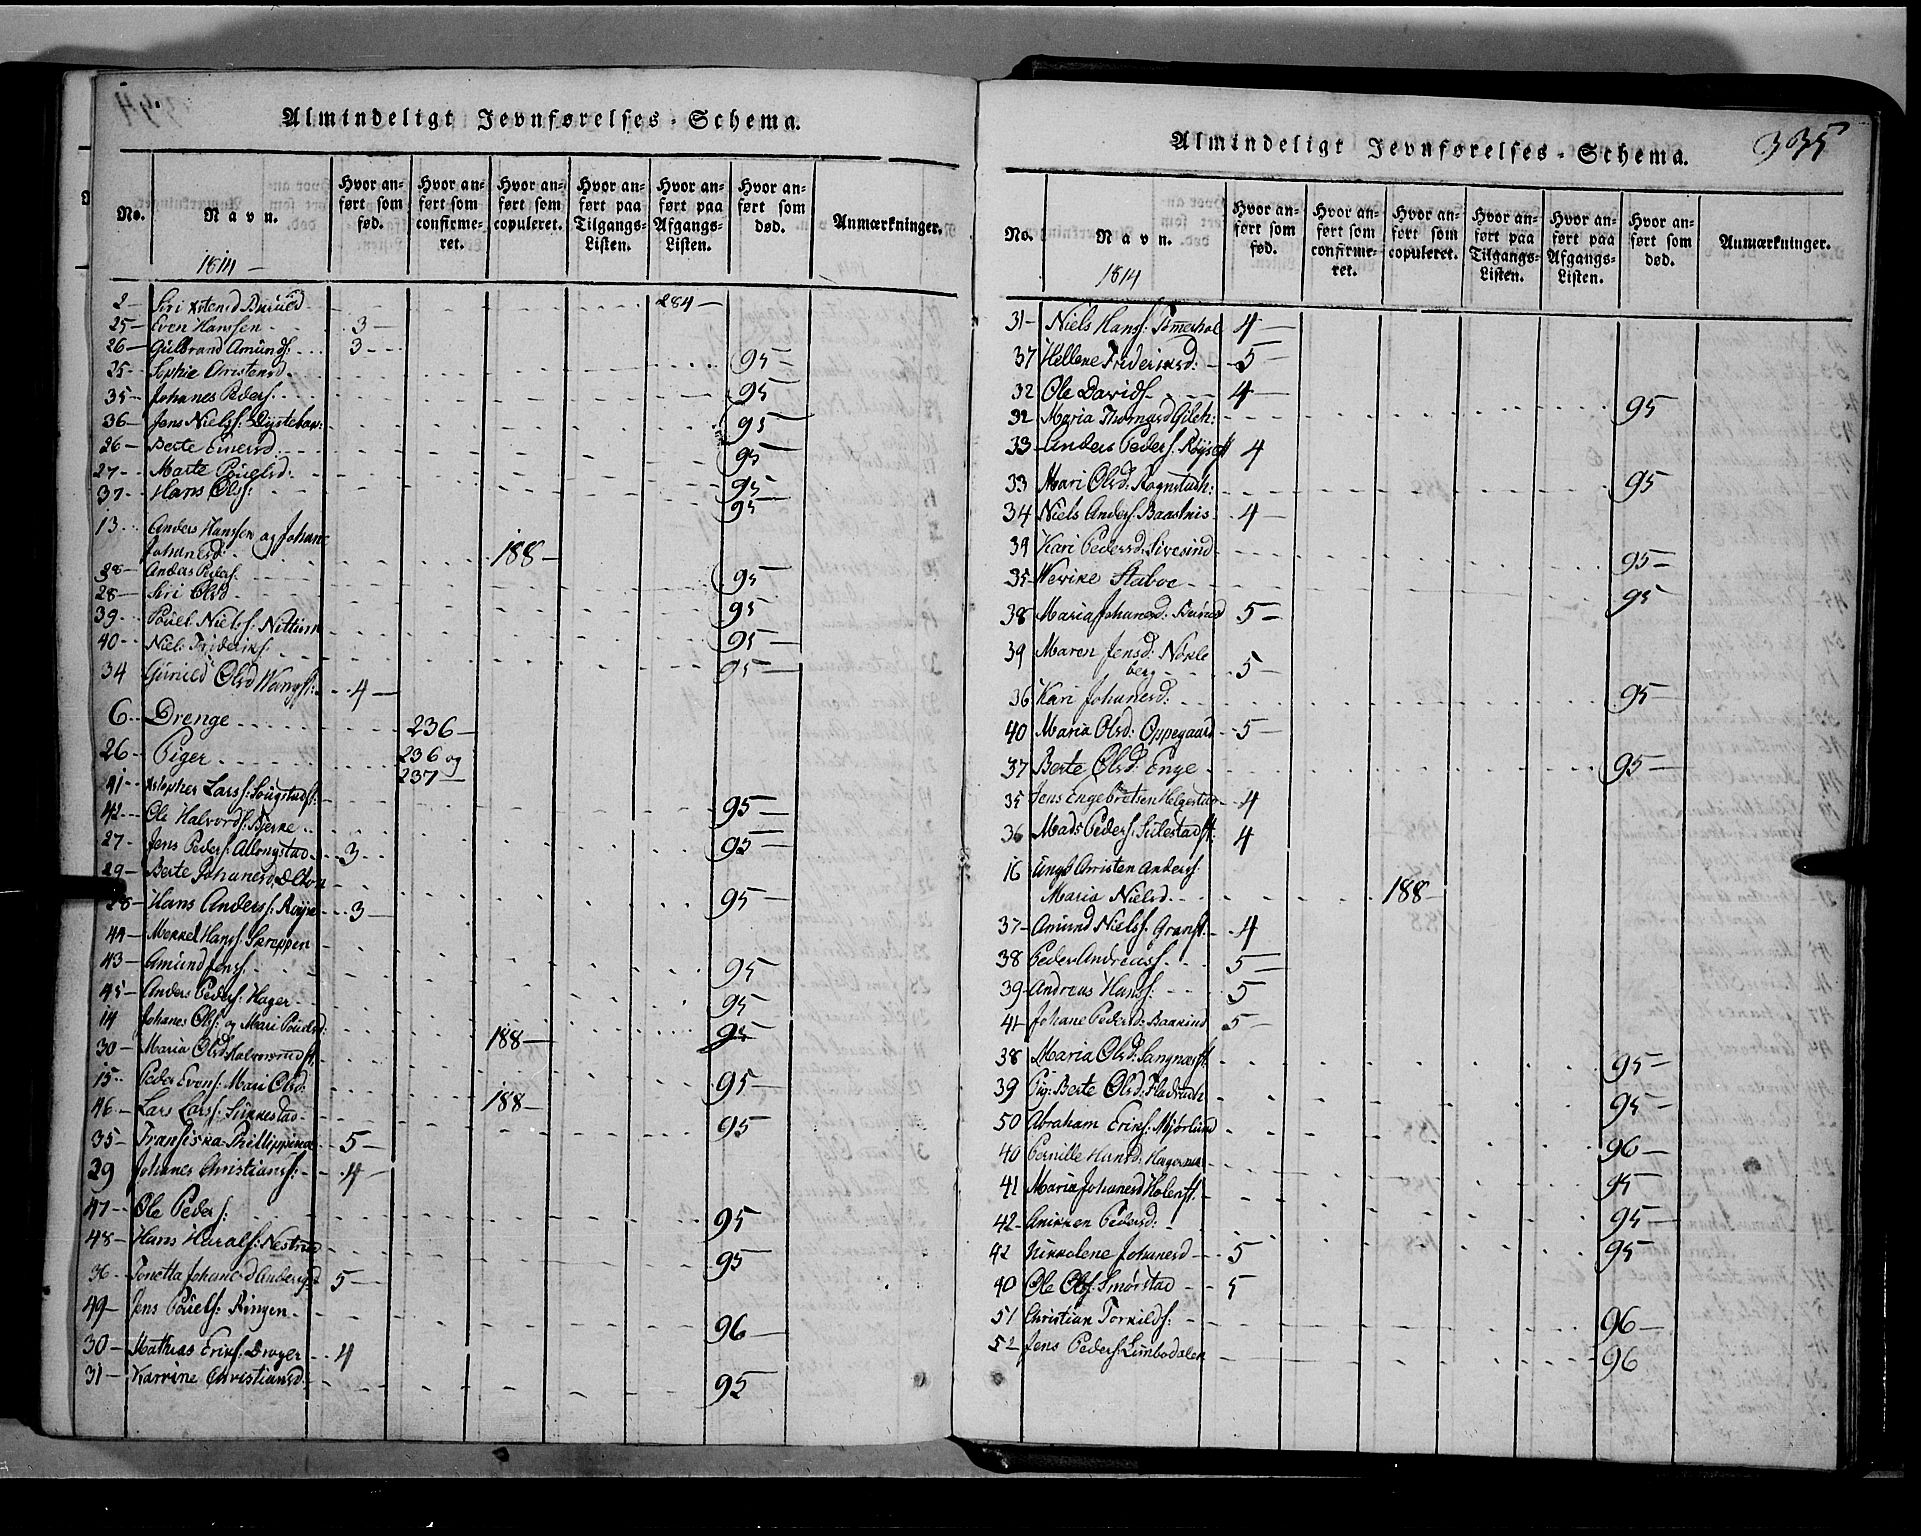 Almindeligt Jevnførelses-Schema.
No. Navn. Hvor anført som fød. Hvor anført som confirmeret. Hvor anført som copuleret. Hvor anført paa Tilgangs-Listen. Hvor anført paa Afgangs-Listen. Hvor anført som død. Anmærkninger.
1814
2 Siri 284
25 Even Hanssen 3
26 Gulbrand Amunds: 3
25 Sophie Christensd 95
35 Johanes Peders: 95
36 Jens Nielss: 95
26 Berte Einersd: 95
27 Marte Pouelsd: 95
37 Hans Ols: 95
13 Anders Hanssen og Johane
Johanesd: 188
38 Anders Peders 95
28 Siri Olsd 95
39 Pouel Nielss: 95
40 Niels Frideriks 95
34 Gunild Olsd 4
6 Drenge 236
26 Piger 236 og
237
41 Larss: 95
42 Ole Halvords: Bjerke 95
27 Jens Peders: Allongstad 3
29 Berte Johanesd Olton 95
28 Hans Anderss: Røyse 3
44 Mekkel Hanss: Skreppen 95
43 Amund Jens 95
45 Anders Peders: Hager 95
14 Johanes Ols: og Mari Pouelsd: 188
30 Maria Olsd 95
15 Peder Evens: Mari Olsd: 188
46 Lars Larss: Sukkestad 95
35 Fransiska Phillippena 5
29 Johanes Christianss: 4
47 Ole Peders: 95
48 Hans Harals: 95
36 Tonetta Johanesd 5
49 Jens Pouels: Ringen 96
30 Mathias Eriks: Droger 4
31 Karrine Christiansd 95
335
Almindeligt Jevnførelses-Schema.
No. Navn. Hvor anført som fød. Hvor anført som confirmeret. Hvor anført som copuleret. Hvor anført paa Tilgangs-Listen. Hvor anført paa Afgangs-Listen. Hvor anført som død. Anmærkninger.
1814
31 Niels Hans: 4
37 Hellene Frideriksd: 5
32 Ole Davids 4
32 Maria Thomasd 95
33 Anders Peders: 4
33 Mari Olsd: 95
34 Niels Anders: Baastnis 4
39 Kari Pedersd: Sivesind 95
35 Staboe 95
38 Maria Johanesd: 5
39 Maren Jensd: Nøkle
berg 5
36 Kari Johanesd: 95
40 Maria Olsd: Oppegaard 5
37 Berte Olsd: Enge 95
35 Jens Engebretsen Helgestad 4
36 Mads Peders: 4
16 Christen Anders
Maria Nielsd 188
37 Amund Nielss: 4
38 Peder Andreass 5
39 Andreas Hanss: 5
41 Johane Pedersd: 5
38 Maria Olsd: 95
39 Pig: Berte Olsd: 95
50 Abraham Eriks: Mjørlund 96
40 Pernille Hansd: 95
41 Maria Johanesd 95
42 Anikken Pedersd: 95
42 Nikkolene Johanesd 5
40 Ole Ols: Smørstad 5
51 Christian Torkilds: 96
52 Jens Peders: Limbodalen 96